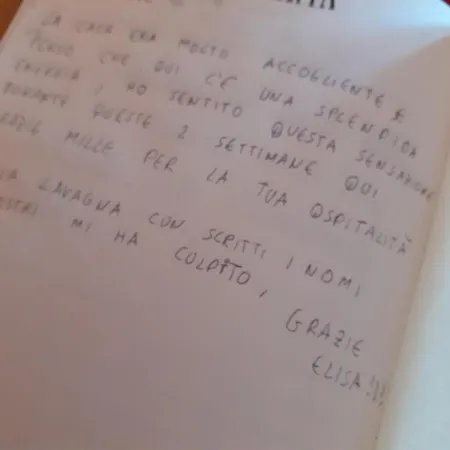 LA CASA ERA MOLTO ACCOGLIENTE E
PENSO CHE QUI C'È UNA SPLENDIDA
ENERGIA, HO SENTITO QUESTA SENSAZIONE
DURANTE QUESTE 2 SETTIMANE QUI
GRAZIE MILLE PER LA TUA OSPITALITÀ
LA LAVAGNA CON SCRITTI I NOMI
NOSTRI MI HA COLPITO,
GRAZIE
ELISA!!!